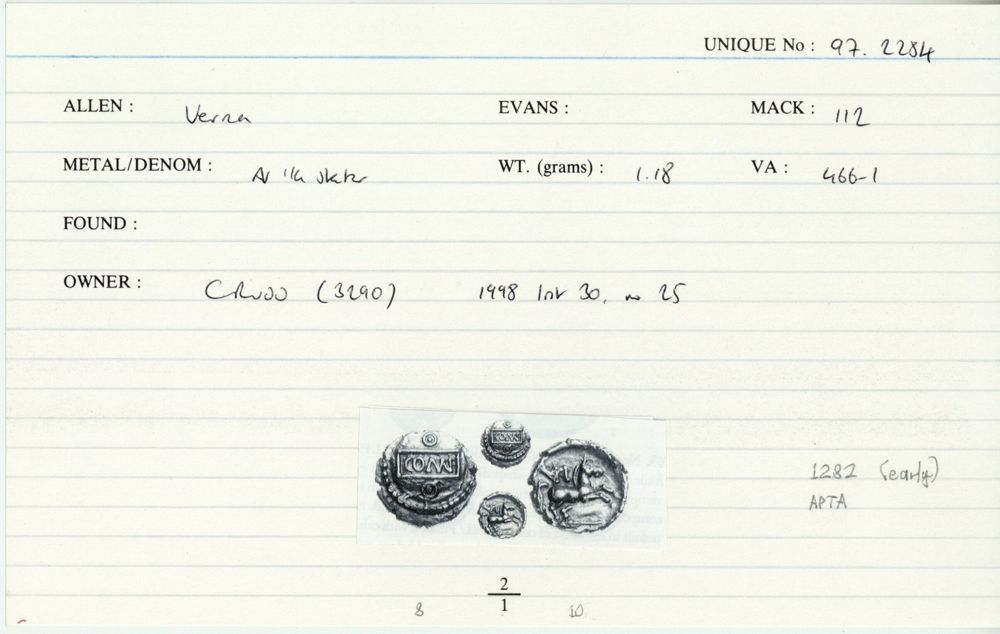 UNIQUE No : 97. 2284
ALLEN : Verica EVANS : MACK : 112
METAL/DENOM : AV 1/4 stater WT. (grams) : 1.18 VA : 466-1
FOUND :
OWNER : (3290) 1998 30, no 25
COMMF
1282 (early)
APTA
2
8 1 10